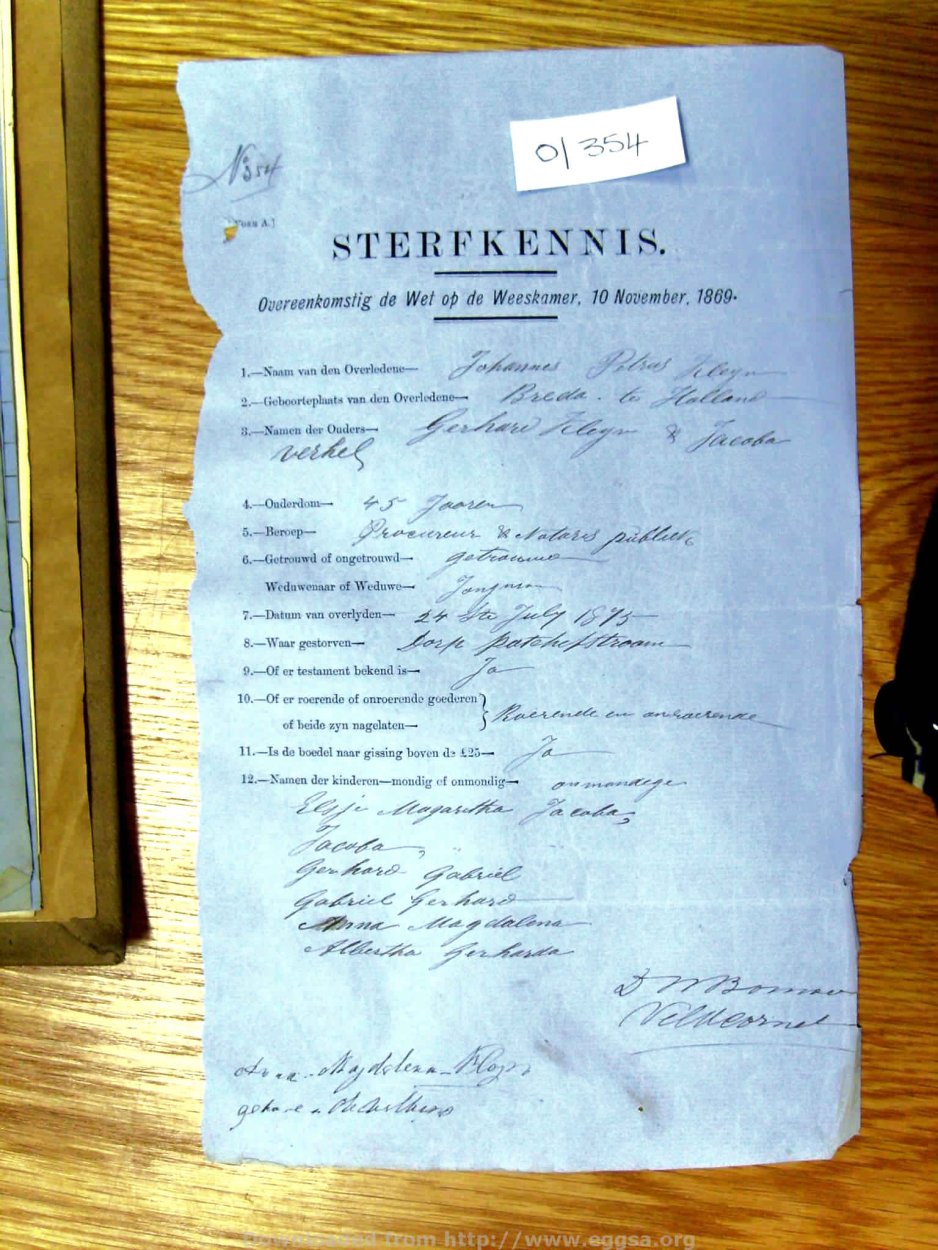 01 354
No 354
[Form A.]
STERFKENNIS.
Overeenkomstig de Wet op de Weeskamer, 10 November, 1869.
1.—Naam van den Overledene— Johannes Petrus Kleyn
2.—Geboorteplaats van den Overledene— Breda. te Holland
3.—Namen der Ouders— Gerhard Kleyn & Jacoba
verhel
4.—Ouderdom— 45 Jaaren
5.—Beroep— Procureur & Notaris publiek
6.—Getrouwd of ongetrouwd— getrouwd
Weduwenaar of Weduwe— Jongman
7.—Datum van overlyden— 24 ste July 1875
8.—Waar gestorven— Dorp Potchefstroom
9.—Of er testament bekend is— Ja
10.—Of er roerende of onroerende goederen
of beide zyn nagelaten— Roerende en onroerende
11.—Is de boedel naar gissing boven de £25— Ja
12.—Namen der kinderen—mondig of onmondig— onmondige
Elsje Magaretha Jacoba,
Jacoba,
Gerhard Gabriel
Gabriel Gerhard
Anna Magdalena
Albertha Gerharda
Veldcornet
Anna Magdalena Kleyn
Downloaded from http://www.eggsa.org